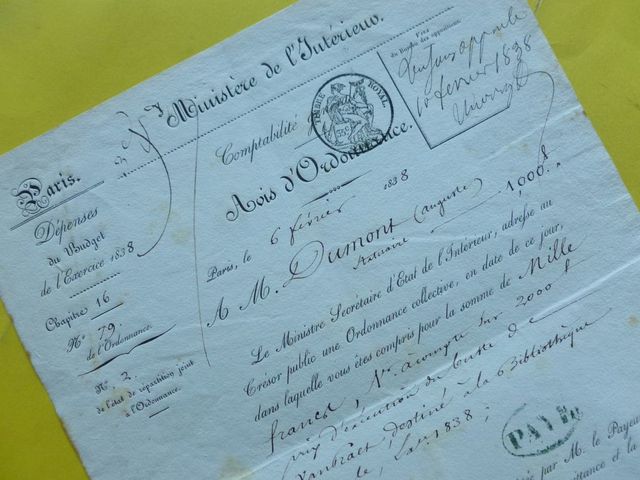 Ministère de l'Intérieur.
Comptabilité
TIMBRE ROYAL
Visa
du Bureau des oppositions.
10 février 1838
Avis d'Ordonnance.
Paris.
Dépenses
du Budget
de l'Exercice 1838
Chapitre 16
N° 79
de l'Ordonnance.
N° 2
de l'état de répartition joint
à l'Ordonnance.
Paris, le 6 février 1838
A M. Dumont (auguste) 1000 f
Statuaire
Le Ministre Secrétaire d'État de l'Intérieur, adresse au
Trésor public une Ordonnance collective, en date de ce jour,
dans laquelle vous êtes compris pour la somme de Mille
francs, 1er à compte sur 2000 f
prix d'exécution du buste de
destiné à la Bibliothèque
1838;
PAYÉ
par M. le Payeur
et la